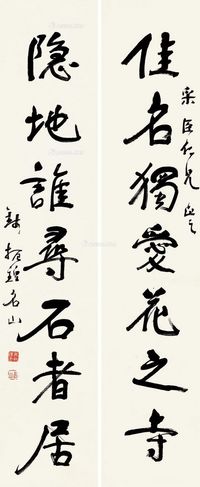 佳名獨愛花之寺
采臣仁兄正之
隐地誰尋石者居
錢振鍠名山